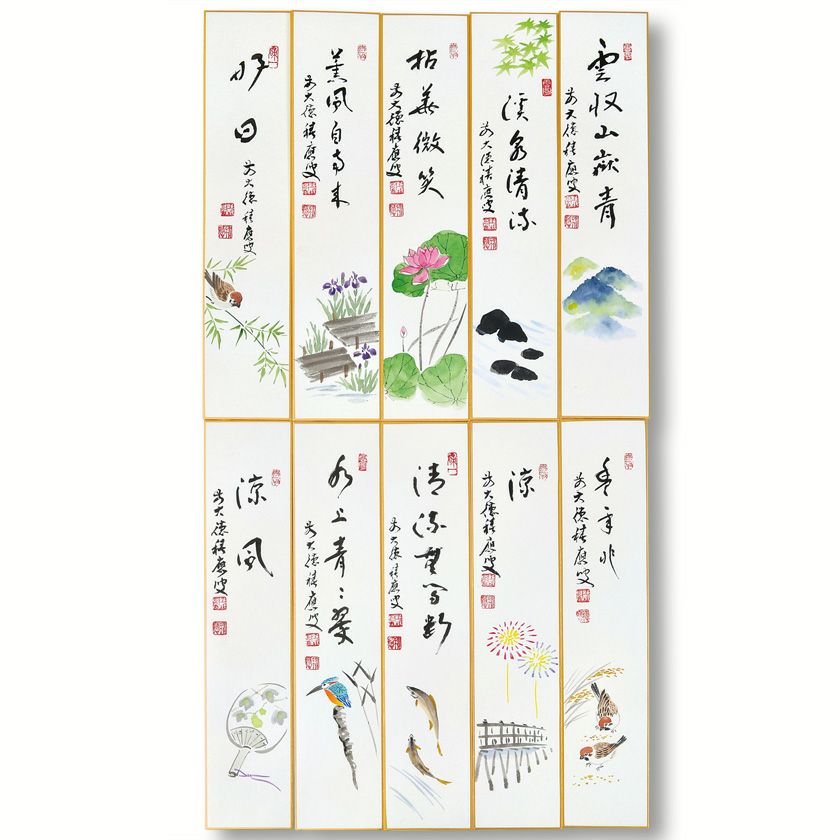 雲収山嶽青
前大徳積應叟
渓清流
前大徳積應叟
拈華微笑
前大徳積應叟
薫風自南来
前大徳積應叟
好日
前大徳積應叟
豊年兆
前大徳積應叟
涼
前大徳積應叟
清流無間断
前大徳積應叟
水上青々翠
前大徳積應叟
涼風
前大徳積應叟